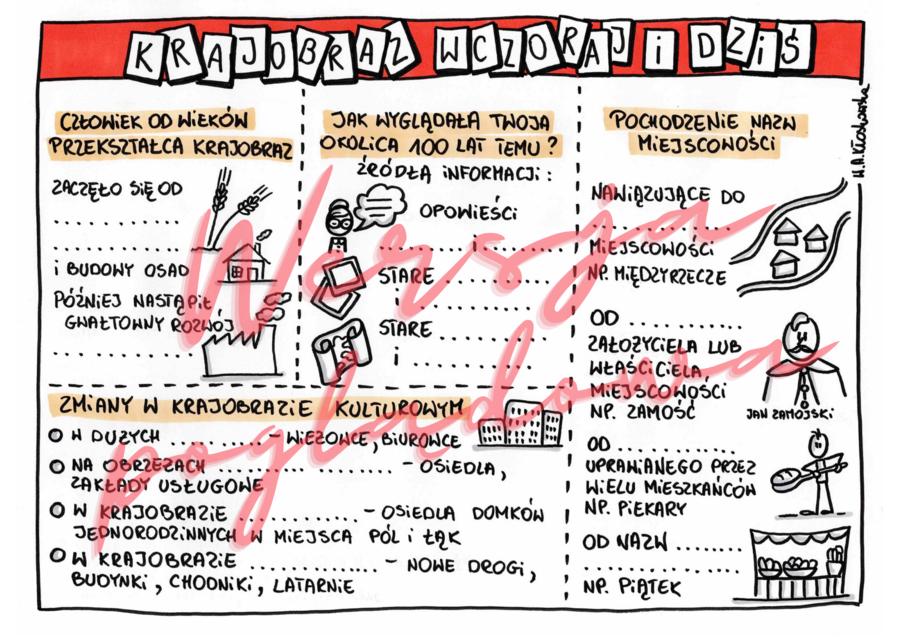 KRAJOBRAZ WCZORAJ I DZIŚ
W.A.Kłosowska
CZŁOWIEK OD WIEKÓW
PRZEKSZTAŁCA KRAJOBRAZ
ZACZĘŁO SIĘ OD
. . . . . . . . . . . . . .
. . . . . . . . . . . . . .
I BUDOWY OSAD
PÓŹNIEJ NASTĄPIŁ
GWAŁTOWNY ROZWÓJ
. . . . . . . . . . . . . .
JAK WYGLĄDAŁA TWOJA
OKOLICA 100 LAT TEMU?
ŹRÓDŁA INFORMACJI:
OPOWIEŚCI
. . . . . . . . . . . i . . . . . . . .
STARE . . . . . . . . . . . .
i . . . . . . . . . . . . . . . .
STARE . . . . . . . . . . . .
i . . . . . . . . . . . . . . . .
POCHODZENIE NAZW
MIEJSCOWOŚCI
NAWIĄZUJĄCE DO
. . . . . . . . . . . . . . . .
MIEJSCOWOŚCI
NP. MIĘDZYRZECZE
OD . . . . . . . . . . . . .
ZAŁOŻYCIELA LUB
WŁAŚCICIELA,
MIEJSCOWOŚCI
NP. ZAMOŚĆ
JAN ZAMOJSKI
OD . . . . . . . . . . . . .
UPRAWIANEGO PRZEZ
WIELU MIESZKAŃCÓW
NP. PIEKARY
OD NAZW . . . . . . .
. . . . . . . . . . . . . . . . .
NP. PIĄTEK
ZMIANY W KRAJOBRAZIE KULTUROWYM
W DUŻYCH . . . . . . . . . . – WIEŻOWCE, BIUROWCE
NA OBRZEŻACH . . . . . . . . . . . . . . . . . . . – OSIEDLA,
ZAKŁADY USŁUGOWE
W KRAJOBRAZIE . . . . . . . . . . . . . – OSIEDLA DOMKÓW
JEDNORODZINNYCH W MIEJSCA PÓL I ŁĄK
W KRAJOBRAZIE . . . . . . . . . . . . . . – NOWE DROGI,
BUDYNKI, CHODNIKI, LATARNIE
Wersja
poglądowa